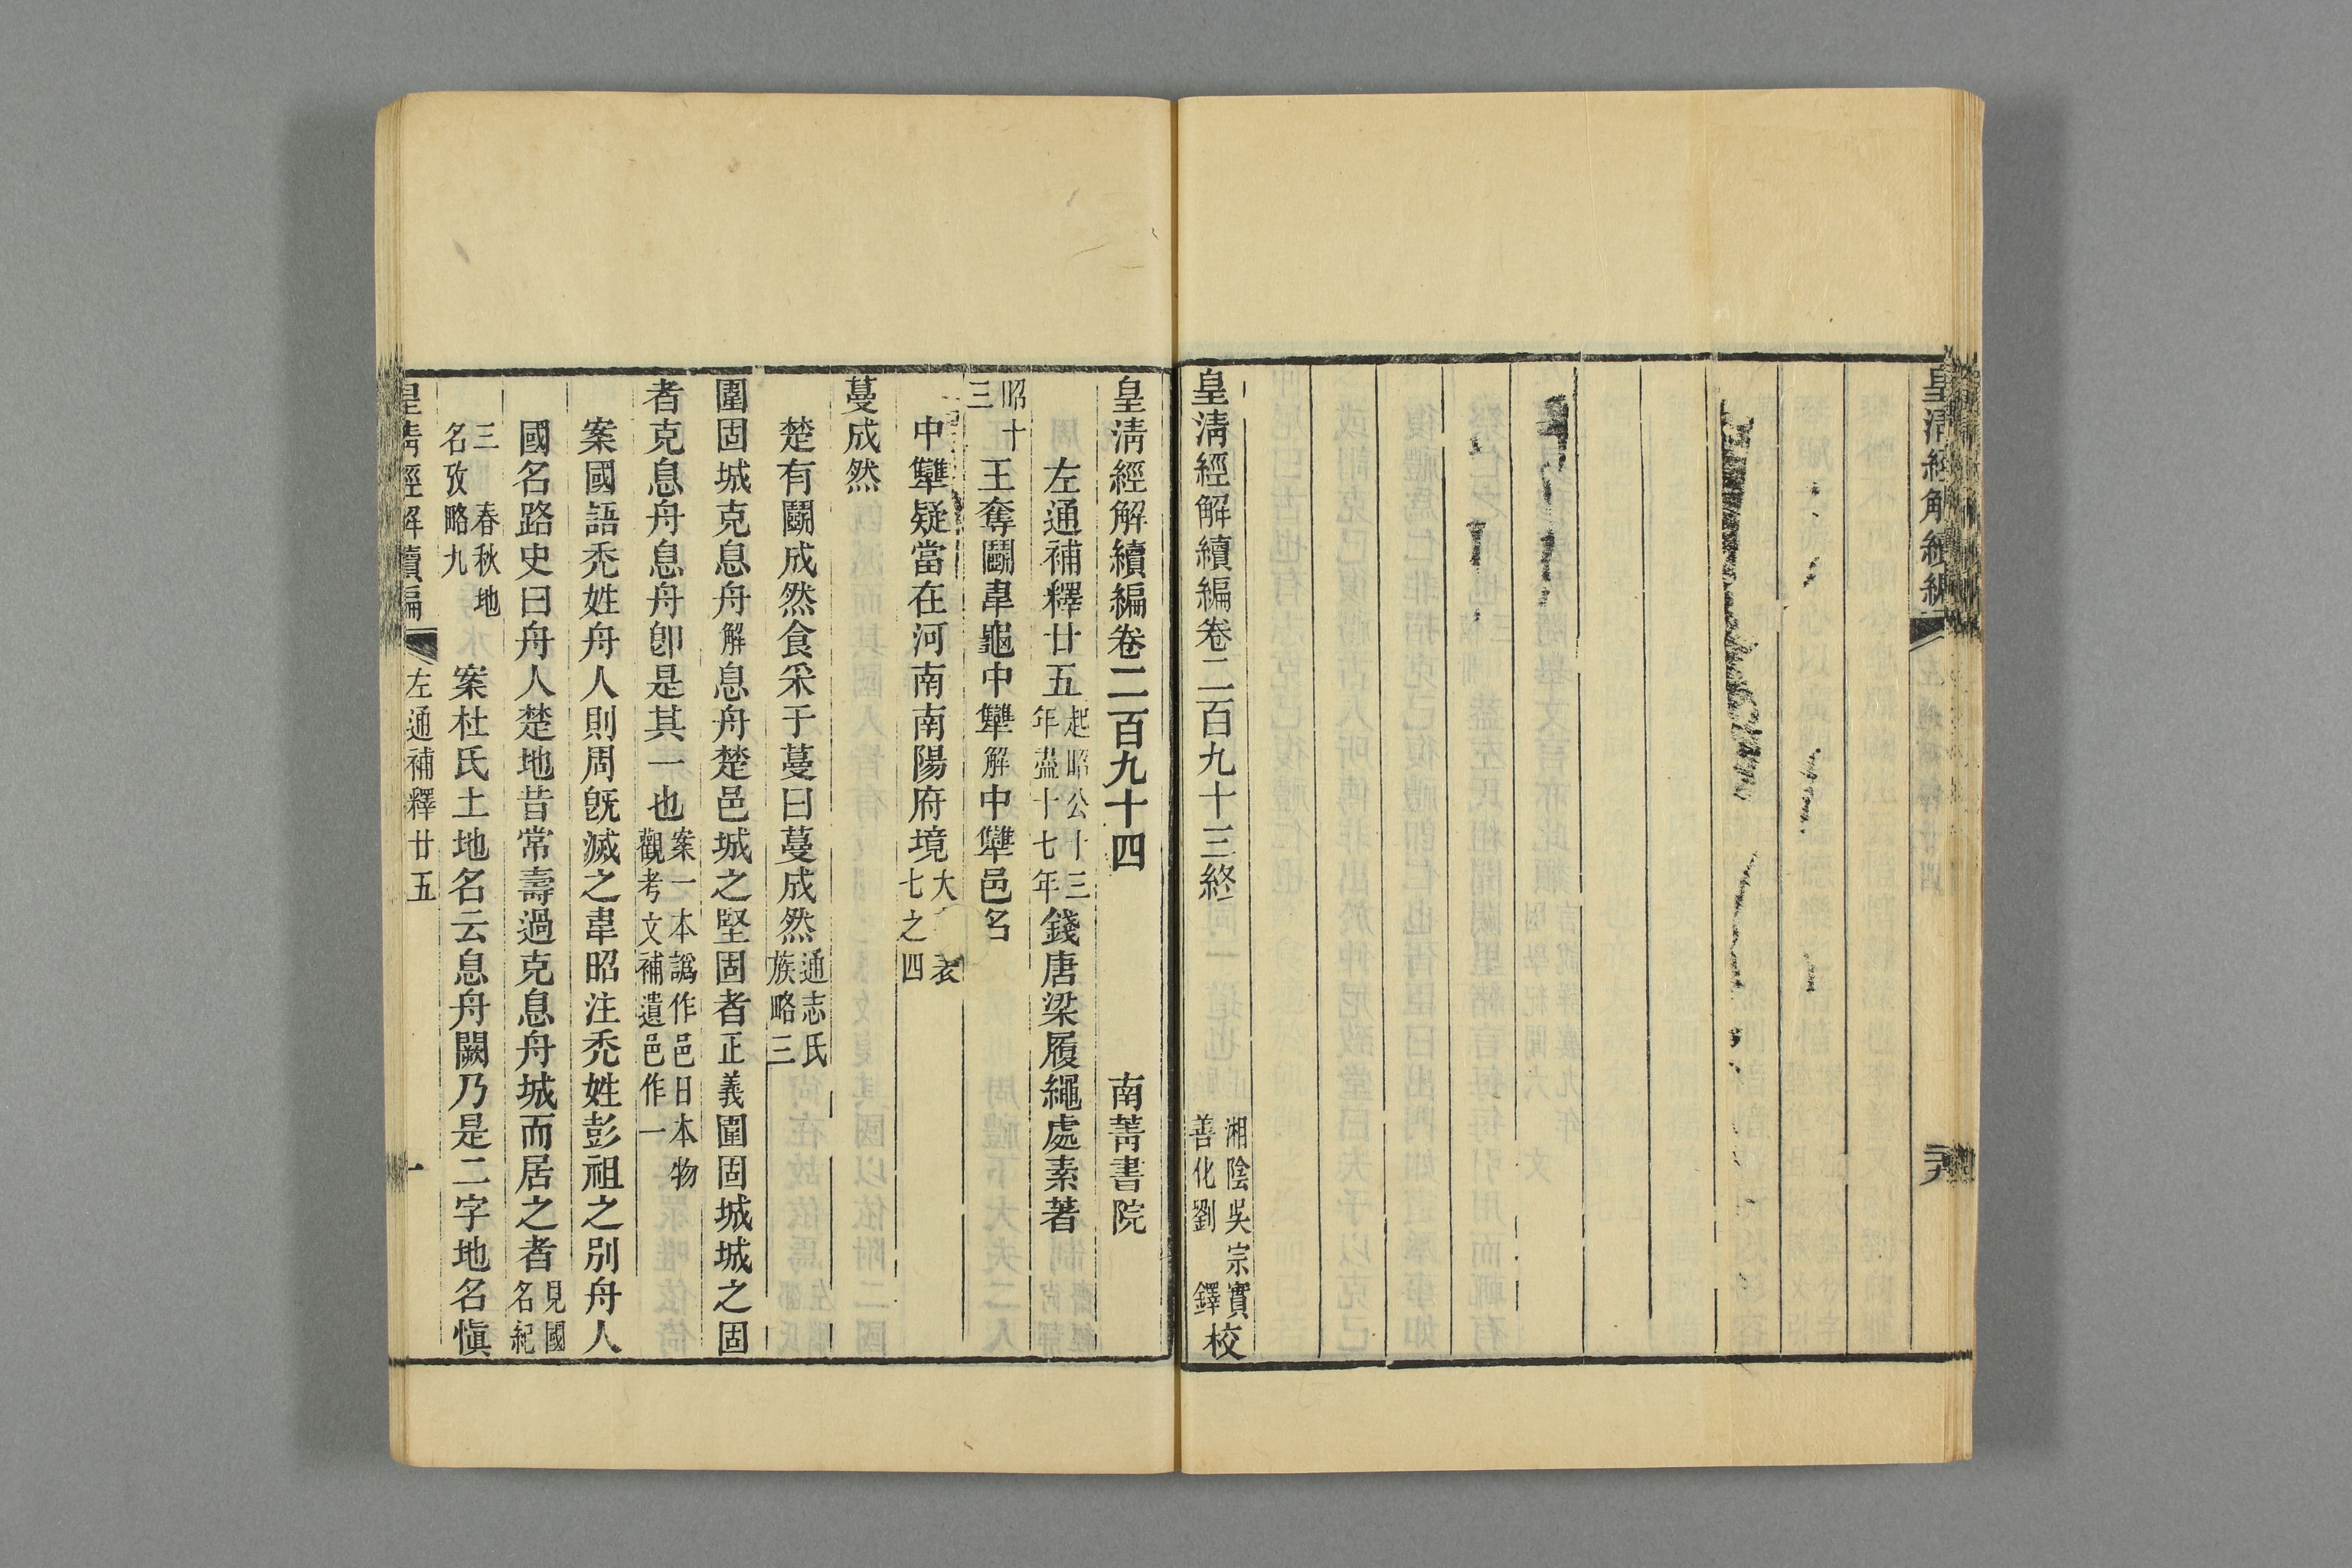 皇清經解續編
皇清經解續編卷二百九十三終
湘陰吳宗實
善化劉 鐸
校
皇清經解續編卷二百九十四 南菁書院
左通補釋廿五 起昭公十三年盡十七年 錢唐梁履繩處素著
昭十三 王奪鬬韋龜中犫解中犫邑名
中犫疑當在河南南陽府境 大 表七之四
蔓成然
楚有鬬成然食采于蔓曰蔓成然 通志氏族略三
圍固城克息舟解息舟楚邑城之堅固者正義圍固城城之固
者克息舟息舟卽是其一也 案一本譌作邑日本物觀考文補遺邑作一
案國語禿姓舟人則周旣滅之韋昭注禿姓彭祖之別舟人
國名路史曰舟人楚地昔常壽過克息舟城而居之者 見國名紀
三 春秋地名攷略九 案杜氏土地名云息舟闕乃是二字地名愼
皇清經解續編 左通補釋廿五 一